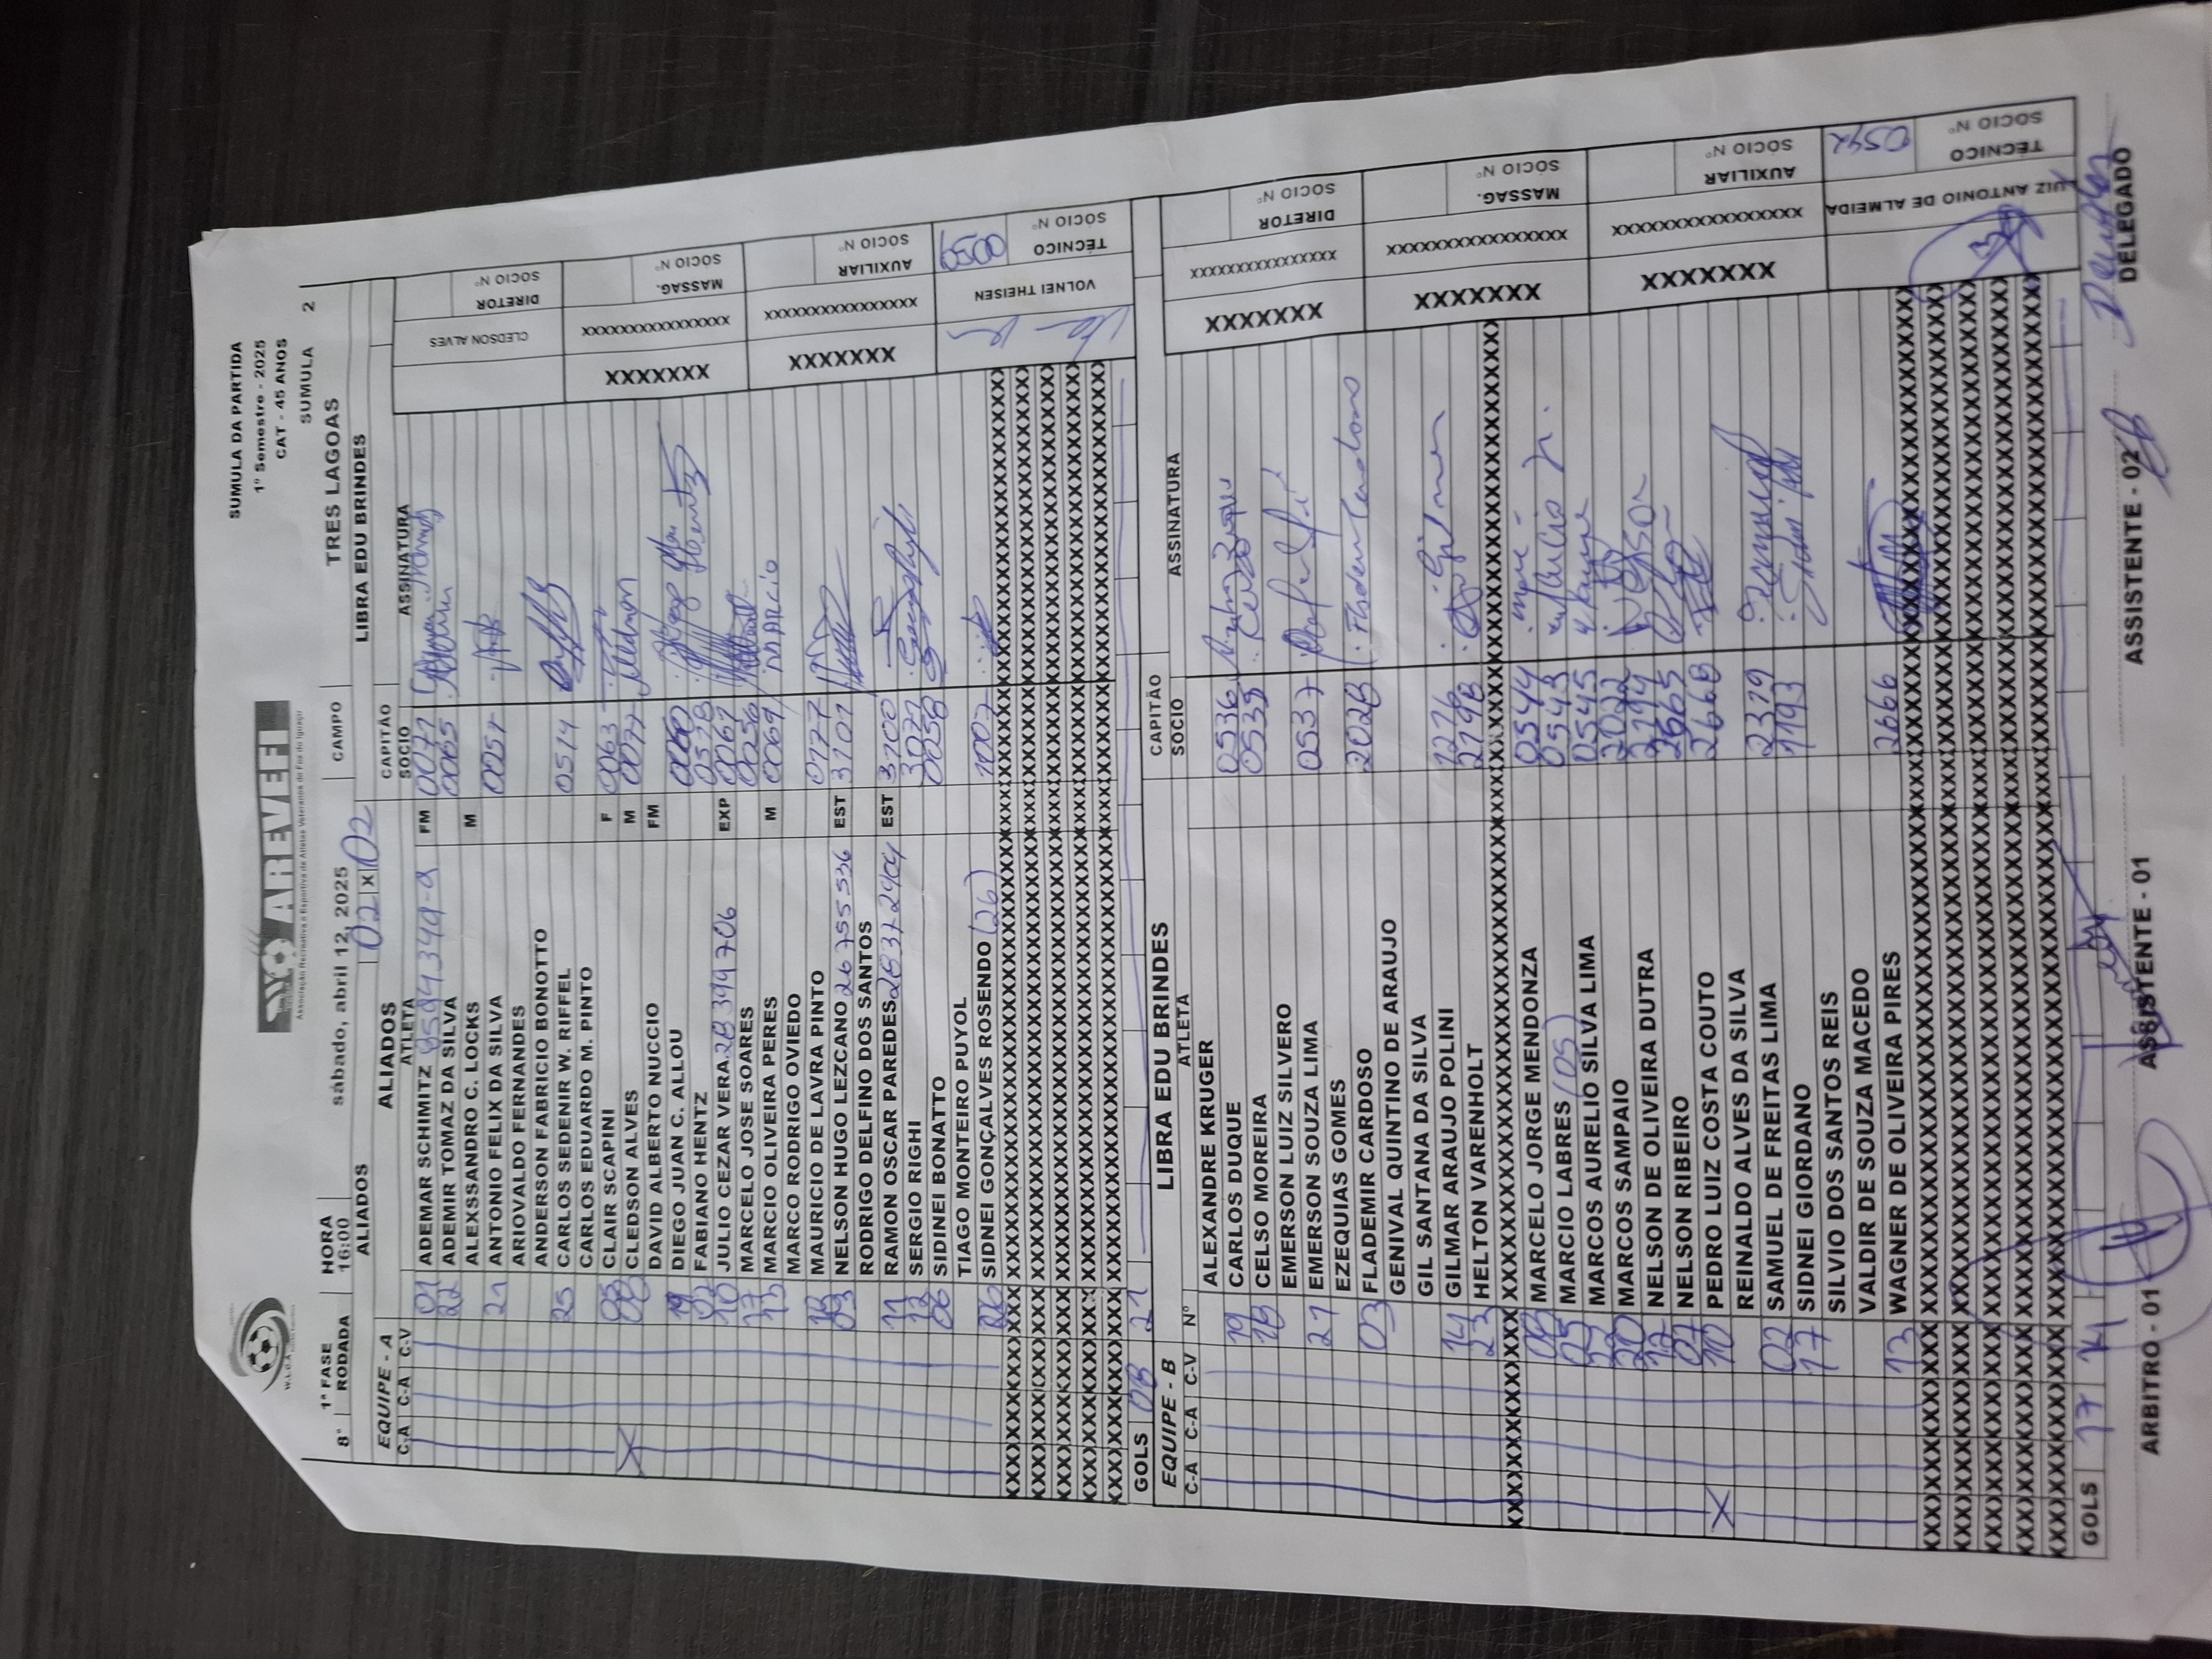 SUMULA DA PARTIDA
1º Semestre - 2025
CAT - 45 ANOS
AREVEFI
Associação Recreativa e Esportiva de Atletas Veteranos de Foz do Iguaçu
SUMULA 2
8ª 1ª FASE RODADA HORA 16:00 sábado, abril 12, 2025 CAMPO TRES LAGOAS
ALIADOS 02 X 02 LIBRA EDU BRINDES
EQUIPE - A ALIADOS CAPITÃO
C-A C-A C-V ATLETA SOCIO ASSINATURA
01 ADEMAR SCHIMITZ FM 0071
22 ADEMIR TOMAZ DA SILVA 0065
ALEXSSANDRO C. LOCKS M
21 ANTONIO FELIX DA SILVA 0057
ARIOVALDO FERNANDES
ANDERSON FABRICIO BONOTTO
25 CARLOS SEDENIR W. RIFFEL 0514
CARLOS EDUARDO M. PINTO
CLAIR SCAPINI F 0063
X 08 CLEDSON ALVES M 0077
DAVID ALBERTO NUCCIO FM
19 DIEGO JUAN C. ALLOU
FABIANO HENTZ 0578
10 JULIO CEZAR VERA 28399706 EXP 0067
17 MARCELO JOSE SOARES 0056
MARCIO OLIVEIRA PERES M 0069 MARCIO
MARCO RODRIGO OVIEDO
MAURICIO DE LAVRA PINTO 0177
03 NELSON HUGO LEZCANO 26755536 EST 3101
RODRIGO DELFINO DOS SANTOS
11 RAMON OSCAR PAREDES 2837-2404 EST 3100
12 SERGIO RIGHI 3071
06 SIDINEI BONATTO 0058
TIAGO MONTEIRO PUYOL
26 SIDNEI GONÇALVES ROSENDO (26) 1007
GOLS 08 21
CLEDSON ALVES DIRETOR SÓCIO Nº
XXXXXXX XXXXXXXXXXXXXXXX MASSAG. SÓCIO Nº
XXXXXXX XXXXXXXXXXXXXXXX AUXILIAR SÓCIO Nº
VOLNEI THEISEN TÉCNICO SÓCIO Nº 0059
EQUIPE - B LIBRA EDU BRINDES CAPITÃO
C-A C-A C-V Nº ATLETA SOCIO ASSINATURA
ALEXANDRE KRUGER
19 CARLOS DUQUE 0536
18 CELSO MOREIRA 0538
EMERSON LUIZ SILVERO
21 EMERSON SOUZA LIMA 0537
EZEQUIAS GOMES
03 FLADEMIR CARDOSO 2028 Flademir Cardoso
GENIVAL QUINTINO DE ARAUJO
GIL SANTANA DA SILVA
14 GILMAR ARAUJO POLINI 1276 Gilmar
23 HELTON VARENHOLT 2798
08 MARCELO JORGE MENDONZA 0544
05 MARCIO LABRES (05) 0543
MARCOS AURELIO SILVA LIMA 0545
20 MARCOS SAMPAIO 2022
12 NELSON DE OLIVEIRA DUTRA 2794 NELSON
07 NELSON RIBEIRO 2665
X 10 PEDRO LUIZ COSTA COUTO 2668
REINALDO ALVES DA SILVA
02 SAMUEL DE FREITAS LIMA 2379
17 SIDNEI GIORDANO 1193
SILVIO DOS SANTOS REIS
VALDIR DE SOUZA MACEDO
13 WAGNER DE OLIVEIRA PIRES 2666
GOLS 17 14
XXXXXXX XXXXXXXXXXXXXXXX DIRETOR SÓCIO Nº
XXXXXXX XXXXXXXXXXXXXXXX MASSAG. SÓCIO Nº
XXXXXXX XXXXXXXXXXXXXXXX AUXILIAR SÓCIO Nº
LUIZ ANTONIO DE ALMEIDA TÉCNICO SÓCIO Nº 0542
ARBITRO - 01 ASSISTENTE - 01 ASSISTENTE - 02 DELEGADO